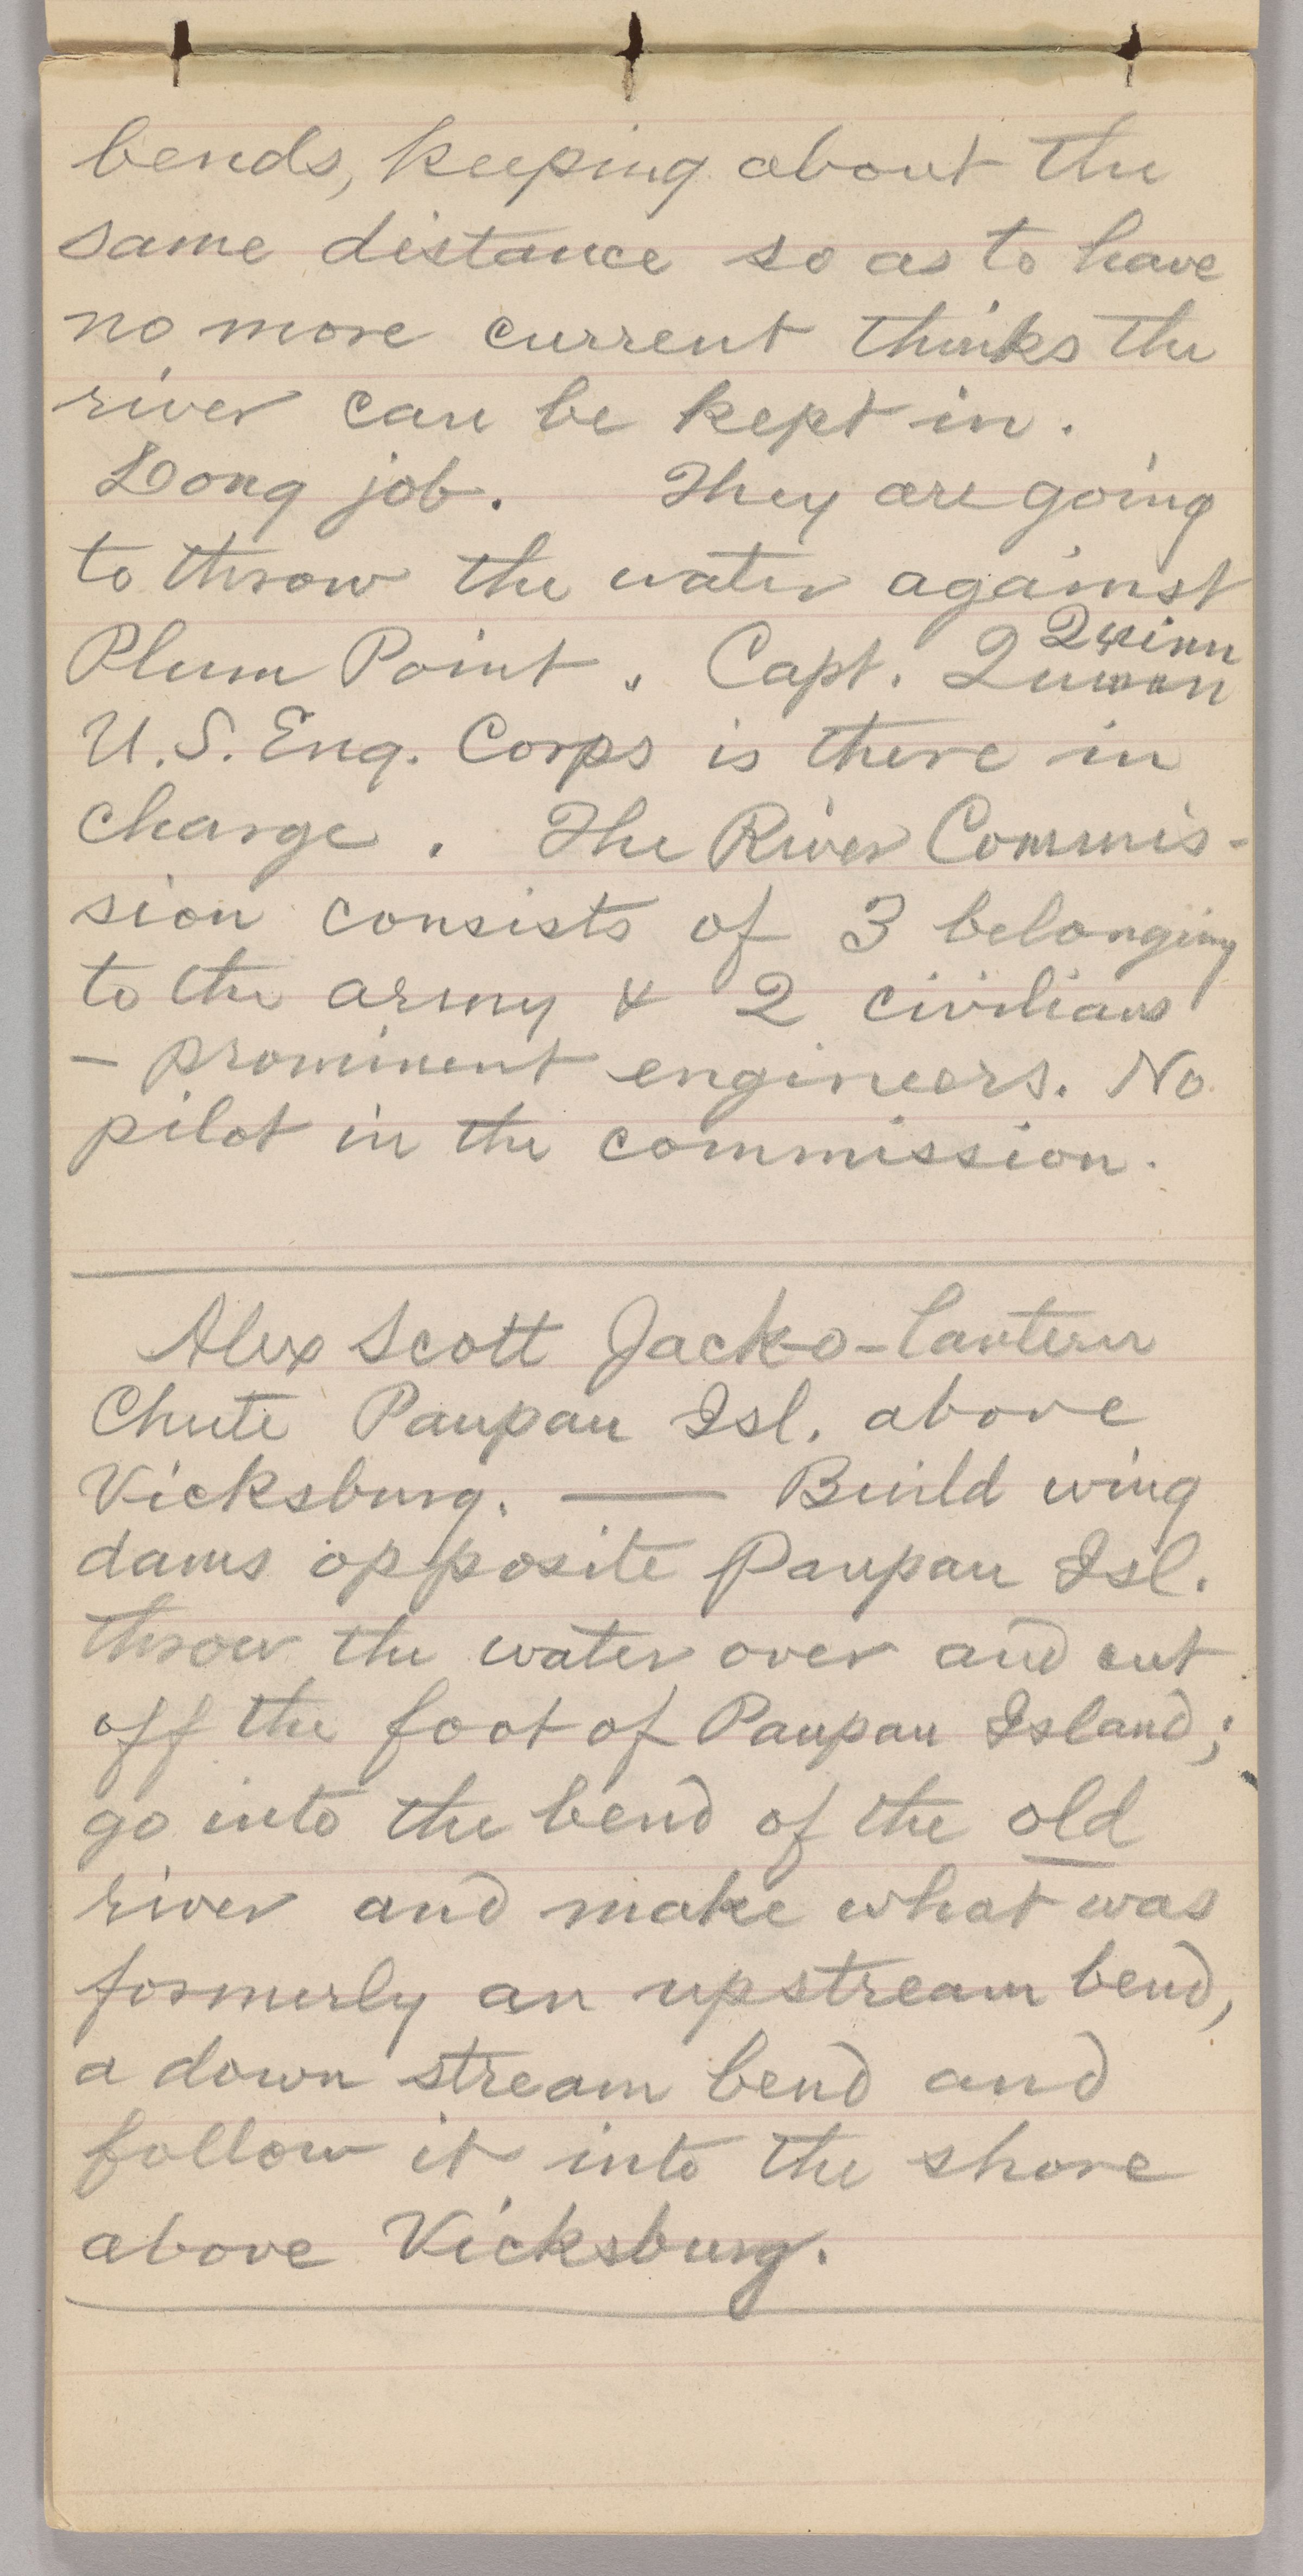 bends, keeping about the
same distance so as to have
no more current thinks the
river can be kept in.
Long job. They are going
to throw the water against
Quinn
Plum Point. Capt.
U.S. Eng. Corps is there in
charge. The River Commis-
sion consists of 3 belonging
to the army & 2 civilians
- prominent engineers. No
pilot in the commission.
Alex Scott Jack-o-lantern
Chute Paupau Isl. above
Vicksburg. — Build wing
dams opposite Paupau Isl.
throw the water over and cut
off the foot of Paupau Island;
go into the bend of the old
river and make what was
formerly an upstream bend,
a down stream bend and
follow it into the shore
above Vicksburg.